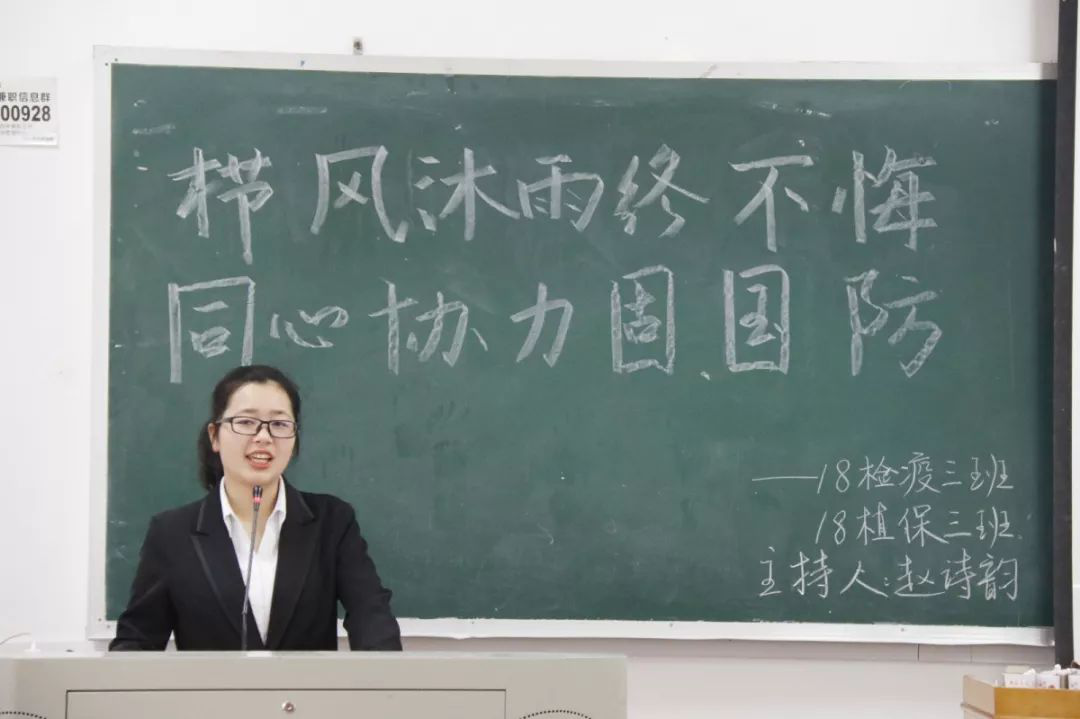 兼职信息群
00928
栉风沐雨终不悔
同心协力固国防
——18检疫三班
18植保三班
主持人:赵诗韵